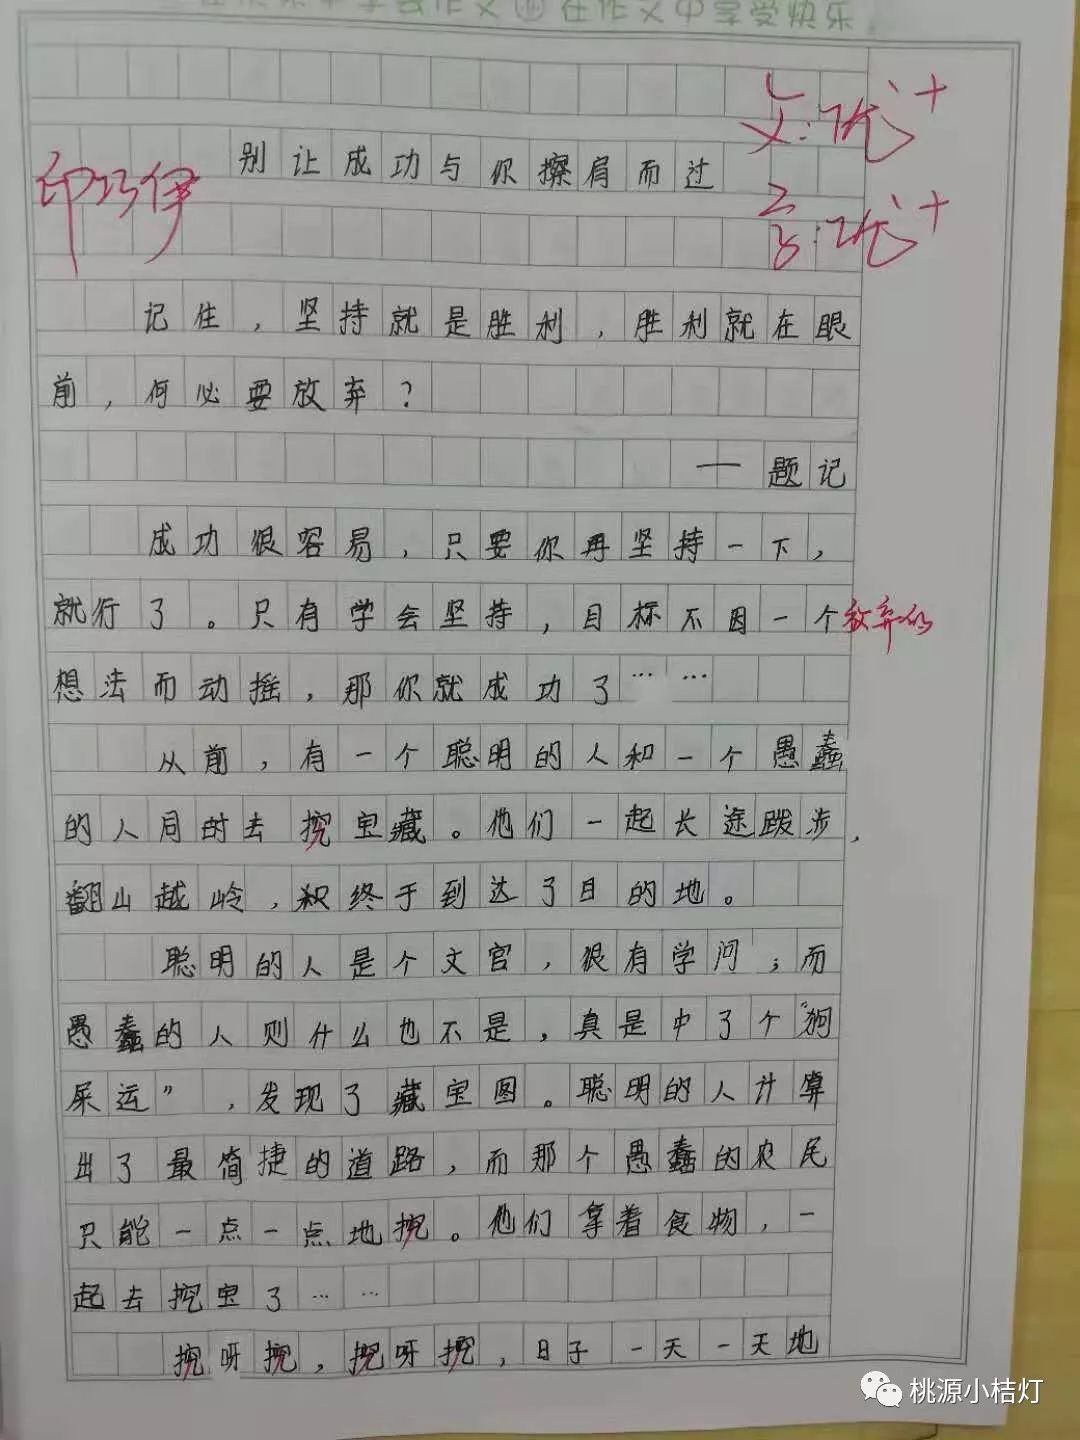 在快乐中学会作文 在作文中享受快乐
文:优+
别让成功与你擦肩而过
印巧伊
言:优+
记住,坚持就是胜利,胜利就在眼
前,何必要放弃?
——题记
成功很容易,只要你再坚持一下,
就行了。只有学会坚持,目标不因一个放弃的
想法而动摇,那你就成功了……
从前,有一个聪明的人和一个愚蠢
的人同时去挖宝藏。他们一起长途跋涉,
翻山越岭,终于到达了目的地。
聪明的人是个文官,很有学问;而
愚蠢的人则什么也不是,真是中了个“狗
屎运”,发现了藏宝图。聪明的人计算
出了最简捷的道路,而那个愚蠢的农民
只能一点一点地挖。他们拿着食物,一
起去挖宝了……
挖呀挖,挖呀挖,日子一天一天地
桃源小桔灯